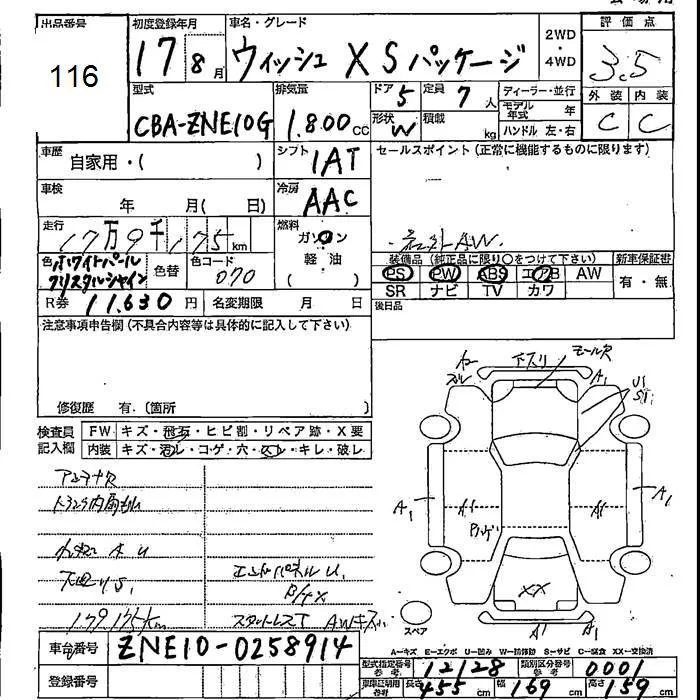 出品番号 初度登録年月 車名・グレード 2WD 評価点
116 17 8月 ウィッシュ X Sパッケージ ・ 4WD 3.5
型式 排気量 ドア 5 定員 7人 ディーラー・並行 外装 内装
CBA-ZNE10G 1.800cc 形状 W 積載 kg モデル年式 年 C C
ハンドル 左・右
車歴 自家用・( ) シフト 1AT セールスポイント(正常に機能するものに限ります)
車検 年 月( 日) 冷房 AAC
走行 17万9千175km 燃料 ガソリン 社外AW
軽油
( )
色 ホワイトパールクリスタルシャイン 色替 色コード 070
装備品(純正品に限り○をつけて下さい) 新車保証書
PS PW ABS エアB AW 有・無
SR ナビ TV カワ
R券 11.630円 名変期限 月 日 後日品
注意事項申告欄(不具合内容等は具体的に記入して下さい)
修復歴 有.〔箇所 〕
検査員記入欄 FW キズ・飛石・ヒビ割・リペア跡・X要
内装 キズ・汚レ・コゲ・穴・スレ・キレ・破レ
下スリ モール欠
A1
U1
S1
アンテナ欠
A1 A1 A1 A1
S1
エンドパネルU1
XX
179.175km スタットレスT AWキズ
スペア A1 A1
A−キズ E−エクボ U−凹み W−補修跡 S−サビ C−腐食 XX−交換済
車台番号 ZNE10-0258914
型式指定番号 参考 12128 類別区分番号 参考 0001
登録番号
車庫証明用 参考 長さ 455cm 幅 169cm 高さ 159cm